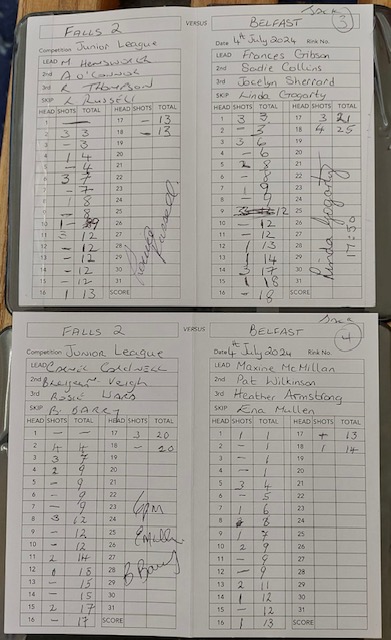 FALLS 2 VERSUS BELFAST 3
Competition Junior League Date 4th July 2024 Rink No.
LEAD M Lead Frances Gibson
2nd A O'Connor 2nd Sadie Collins
3rd R Thompson 3rd Jocelyn Sherrard
SKIP L Russell SKIP Linda Gogarty
HEAD SHOTS TOTAL HEAD SHOTS TOTAL HEAD SHOTS TOTAL HEAD SHOTS TOTAL
1 - - 17 - 13 1 3 3 17 3 21
2 3 3 18 - 13 2 - 3 18 4 25
3 - 3 19 3 3 6 19
4 1 4 20 4 - 6 20
5 - 4 21 5 2 8 21
6 3 7 22 6 - 8 22
7 - 7 23 7 1 9 23
8 1 8 24 8 - 9 24
9 - 8 25 9 3 12 25
10 1 9 26 10 - 12 26
11 3 12 27 11 - 12 27
12 - 12 28 12 1 13 28
13 - 12 29 13 1 14 29
14 - 12 30 14 3 17 30
15 - 12 31 15 1 18 31
16 1 13 SCORE 16 - 18 SCORE
Linda Gogarty
17:50
FALLS 2 VERSUS BELFAST 4
Competition Junior League Date 4th July 2024 Rink No.
LEAD LEAD Maxine McMillan
2nd Veigh 2nd Pat Wilkinson
3rd Rosie Ward 3rd Heather Armstrong
SKIP B. BARRY SKIP Ena Mullen
HEAD SHOTS TOTAL HEAD SHOTS TOTAL HEAD SHOTS TOTAL HEAD SHOTS TOTAL
1 - - 17 3 20 1 1 1 17 - 13
2 4 4 18 - 20 2 - 1 18 1 14
3 3 7 19 3 - 1 19
4 2 9 20 4 - 1 20
5 - 9 21 5 3 4 21
6 - 9 22 6 - 5 22
7 - 9 23 7 1 6 23
8 3 12 24 8 8 24
9 - 12 25 9 1 7 25
10 - 12 26 10 2 9 26
11 2 14 27 11 - 9 27
12 18 28 12 - 9 28
13 - 15 29 13 2 11 29
14 - 15 30 14 1 12 30
15 2 17 31 15 - 12 31
16 - 17 SCORE 16 1 13 SCORE
6PM
E Mullen
B Barry